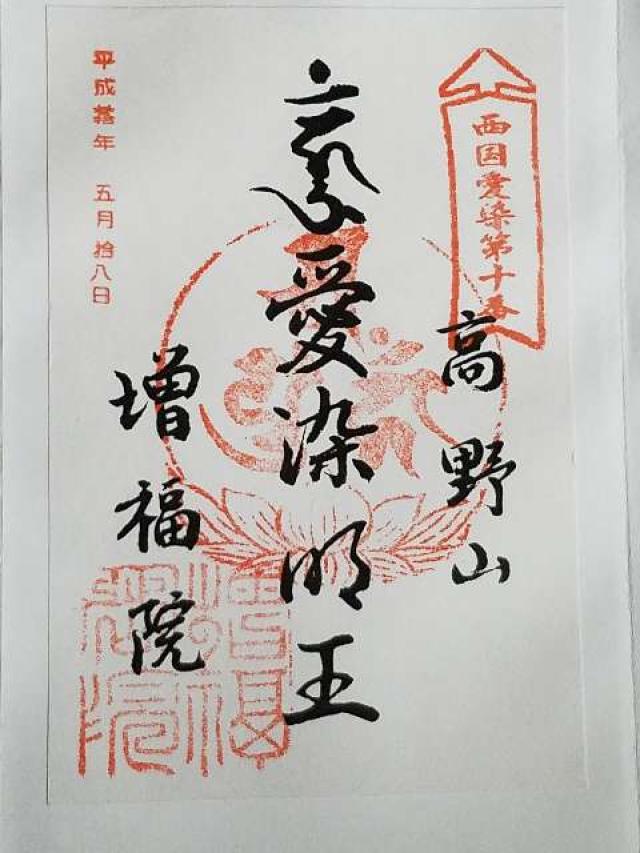 西国愛染第十番
高野山
愛染明王
増福院
平成 年 五月拾八日